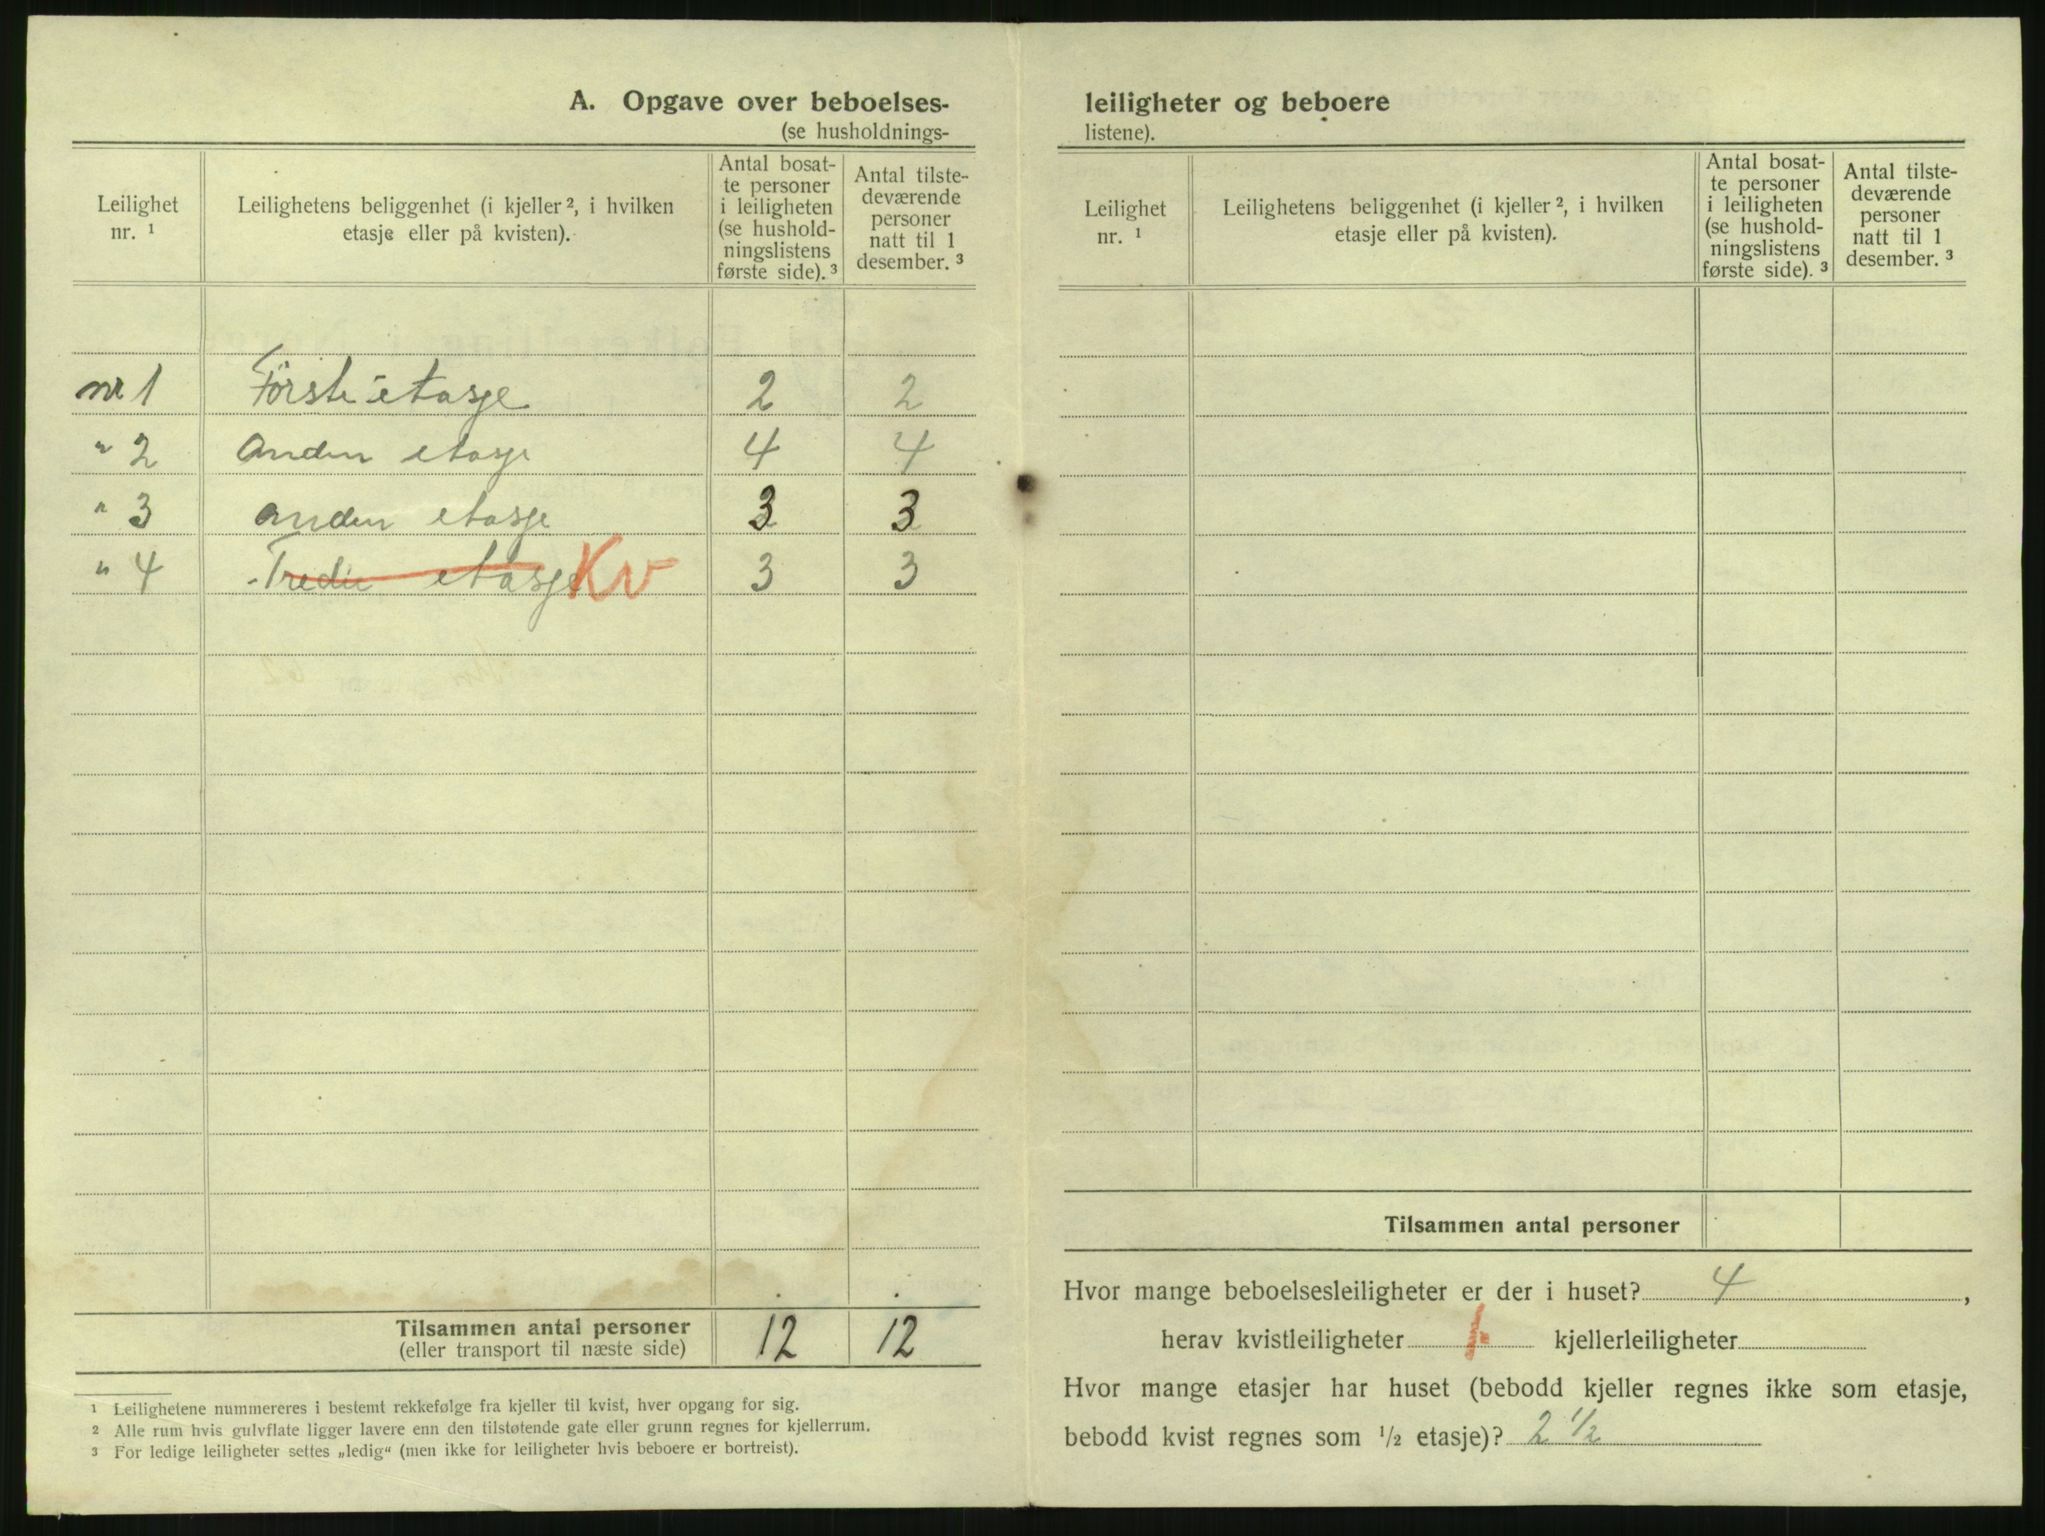 A. Opgave over beboelses-
(se husholdnings-
Leilighet nr. ¹
Leilighetens beliggenhet (i kjeller ², i hvilken etasje eller på kvisten).
Antal bosat-
te personer
i leiligheten
(se hushold-
ningslistens
første side). ³
Antal tilste-
deværende
personer
natt til 1
desember. ³
nr 1 Første etasje 2 2
" 2 Anden etasje 4 4
" 3 Anden etasje 3 3
" 4 Tredie etasje Kv 3 3
Tilsammen antal personer 12 12
(eller transport til næste side)
¹ Leilighetene nummereres i bestemt rekkefølge fra kjeller til kvist, hver opgang for sig.
² Alle rum hvis gulvflate ligger lavere enn den tilstøtende gate eller grunn regnes for kjellerrum.
³ For ledige leiligheter settes „ledig“ (men ikke for leiligheter hvis beboere er bortreist).
leiligheter og beboere
listene).
Leilighet nr. ¹
Leilighetens beliggenhet (i kjeller ², i hvilken etasje eller på kvisten).
Antal bosat-
te personer
i leiligheten
(se hushold-
ningslistens
første side). ³
Antal tilste-
deværende
personer
natt til 1
desember. ³
Tilsammen antal personer
Hvor mange beboelsesleiligheter er der i huset? 4,
herav kvistleiligheter 1 kjellerleiligheter
Hvor mange etasjer har huset (bebodd kjeller regnes ikke som etasje,
bebodd kvist regnes som ½ etasje)? 2 ½